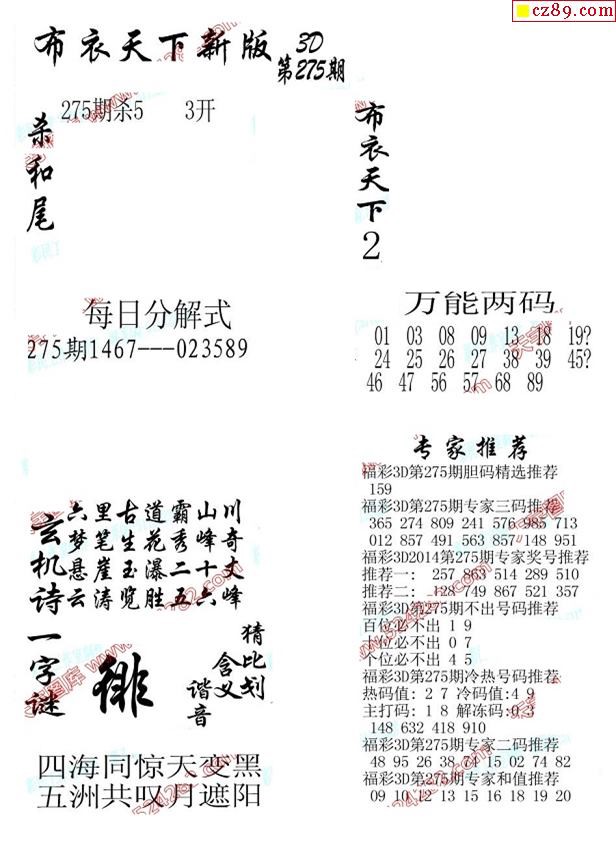 cz89.com
布衣天下新版 3D
第275期
275期杀5 3开
杀和尾
布衣天下
2
每日分解式
275期1467---023589
万能两码
01 03 08 09 13 18 19?
24 25 26 27 38 39 45?
46 47 56 57 68 89
专家推荐
福彩3D第275期胆码精选推荐
159
福彩3D第275期专家三码推荐
365 274 809 241 576 985 713
012 857 491 563 857 148 951
福彩3D2014第275期专家奖号推荐
推荐一: 257 863 514 289 510
推荐二: 128 749 867 521 357
福彩3D第275期不出号码推荐
百位必不出 1 9
十位必不出 0 7
个位必不出 4 5
福彩3D第275期冷热号码推荐
热码值: 2 7 冷码值: 4 9
主打码: 1 8 解冻码: 0 3
148 632 418 910
福彩3D第275期专家二码推荐
48 95 26 38 74 15 02 74 82
福彩3D第275期专家和值推荐
09 10 12 13 15 16 18 19 20
玄机诗
六里古道霸山川
梦笔生花秀峰奇
悬崖玉瀑二十丈
云涛览胜五六峰
一字谜
徘
猜比划
含义
谐音
四海同惊天变黑
五洲共叹月遮阳